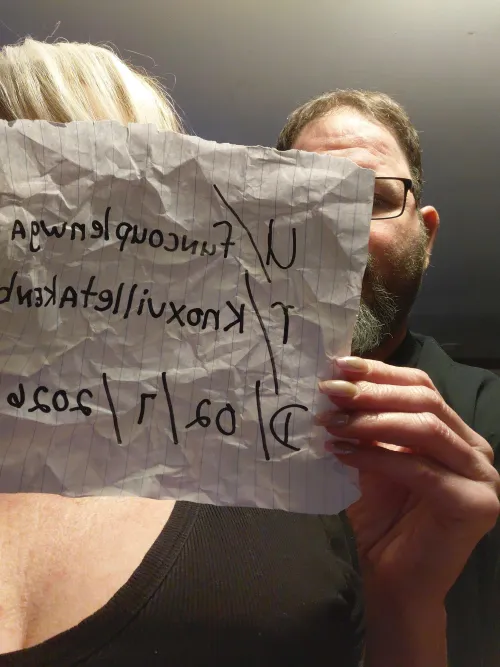 U/ funcouplenwgA
r/ KnoxvilletAkenb
D/ 02/7/2026